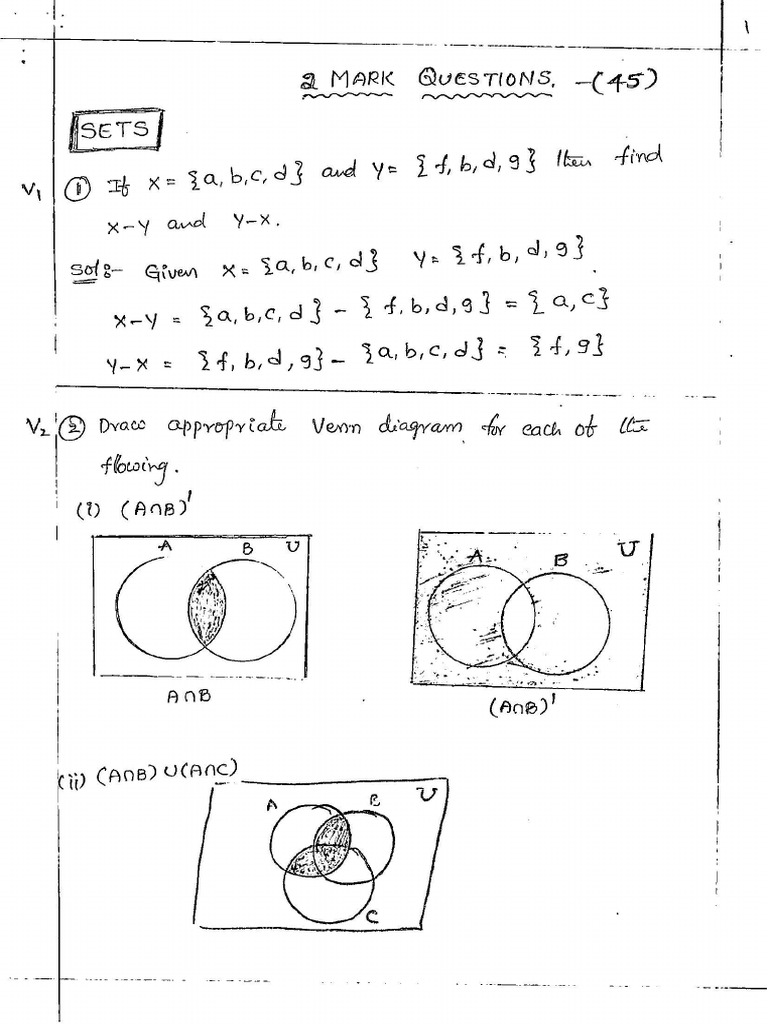 1
2 MARK QUESTIONS. -(45)
SETS
V1 ① If X = {a, b, c, d} and Y = {f, b, d, g} then find
X-Y and Y-X.
Sol:- Given X = {a, b, c, d} Y = {f, b, d, g}
X-Y = {a, b, c, d} - {f, b, d, g} = {a, c}
Y-X = {f, b, d, g} - {a, b, c, d} = {f, g}
V2 ② Draw appropriate Venn diagram for each of the
flowing.
(i) (A∩B)'
A B U
A∩B
A B U
(A∩B)'
(ii) (A∩B) ∪ (A∩C)
A B U
C